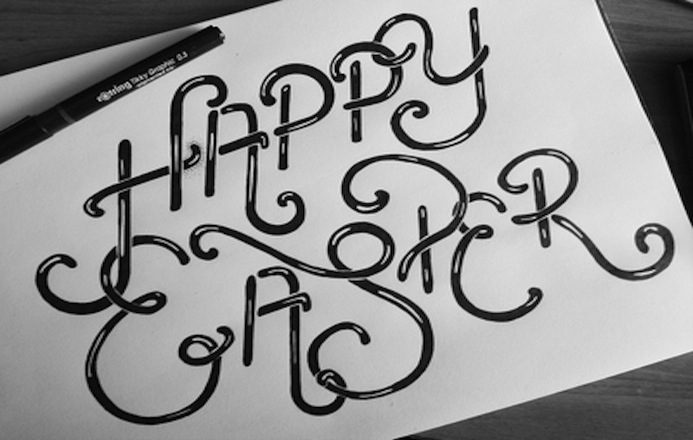 rotring Tikky Graphic 0.3
HAPPY
EASTER